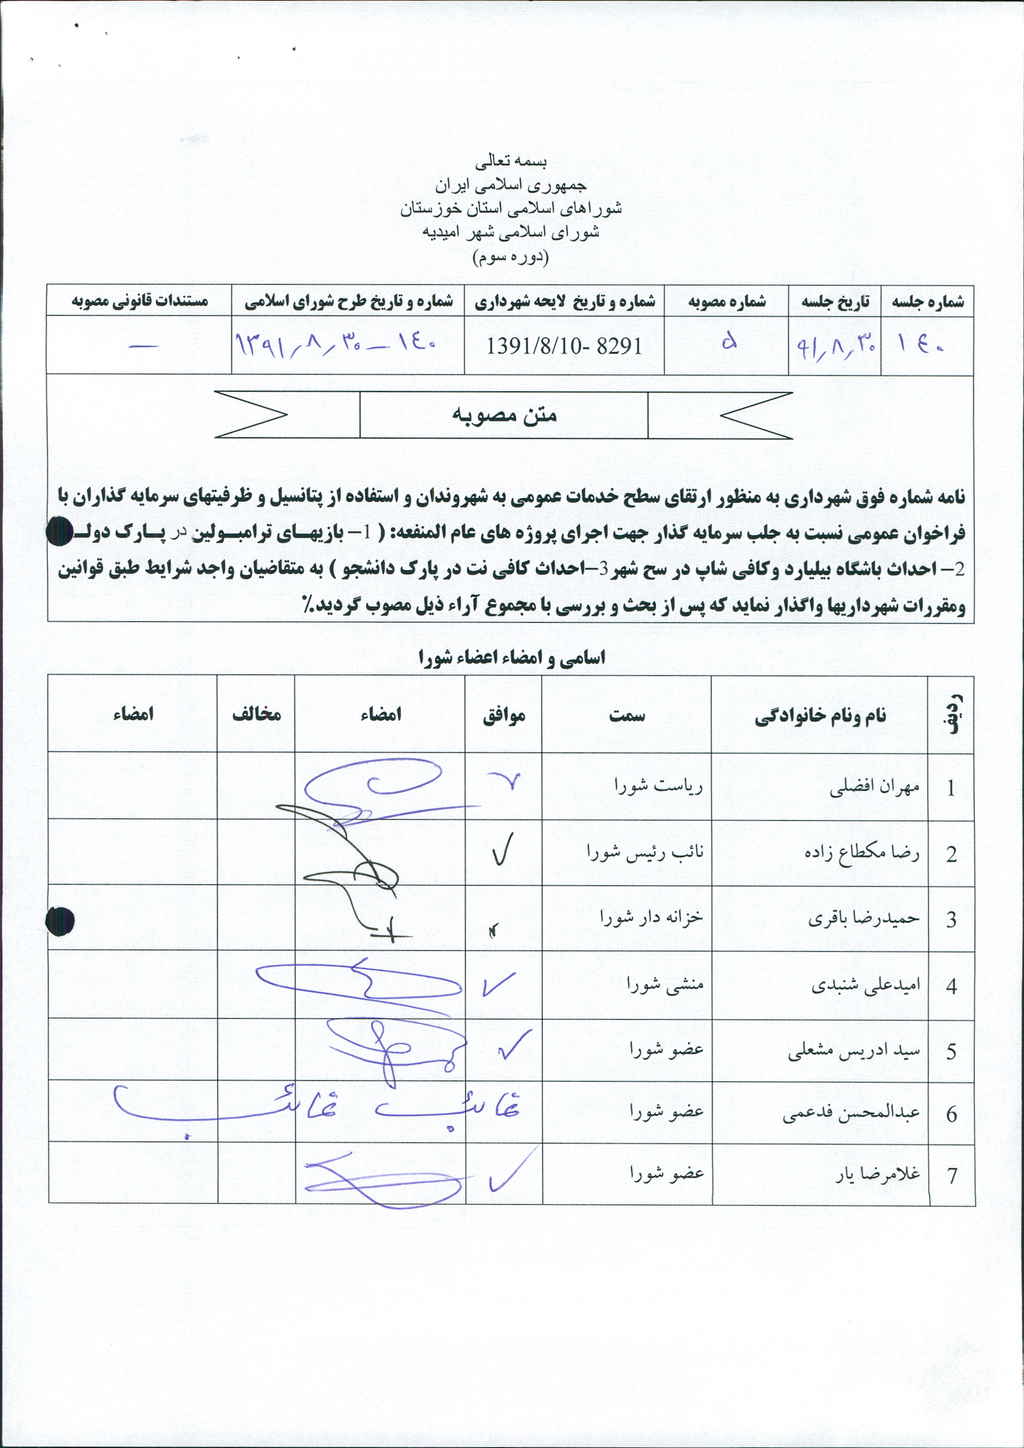 بسمه تعالی
جمهوری اسلامی ایران
شوراهای اسلامی استان خوزستان
شورای اسلامی شهر امیدیه
(دوره سوم)
شماره جلسه تاریخ جلسه شماره مصوبه شماره و تاریخ لایحه شهرداری شماره و تاریخ طرح شورای اسلامی مستندات قانونی مصوبه
۱٤۰ ۹۱٫۸٫۳۰ ۵ 1391/8/10- 8291 ۱٤۰ – ۱۳۹۱٫۸٫۳۰ —
متن مصوبه
نامه شماره فوق شهرداری به منظور ارتقای سطح خدمات عمومی به شهروندان و استفاده از پتانسیل و ظرفیتهای سرمایه گذاران با
فراخوان عمومی نسبت به جلب سرمایه گذار جهت اجرای پروژه های عام المنفعه: ( 1– بازیهای ترامبولین در پارک
2– احداث باشگاه بیلیارد وکافی شاپ در سح شهر3–احداث کافی نت در پارک دانشجو ) به متقاضیان واجد شرایط طبق قوانین
ومقررات شهرداریها واگذار نماید که پس از بحث و بررسی با مجموع آراء ذیل مصوب گردید.٪
اسامی و امضاء اعضاء شورا
ردیف نام ونام خانوادگی سمت موافق امضاء مخالف امضاء
1 مهران افضلی ریاست شورا
2 رضا مکطاع زاده نائب رئیس شورا ✓
3 حمیدرضا باقری خزانه دار شورا
4 امیدعلی شنبدی منشی شورا ✓
5 سید ادریس مشعلی عضو شورا ✓
6 عبدالمحسن فدعمی عضو شورا غائب غائب
7 غلامرضا یار عضو شورا ✓